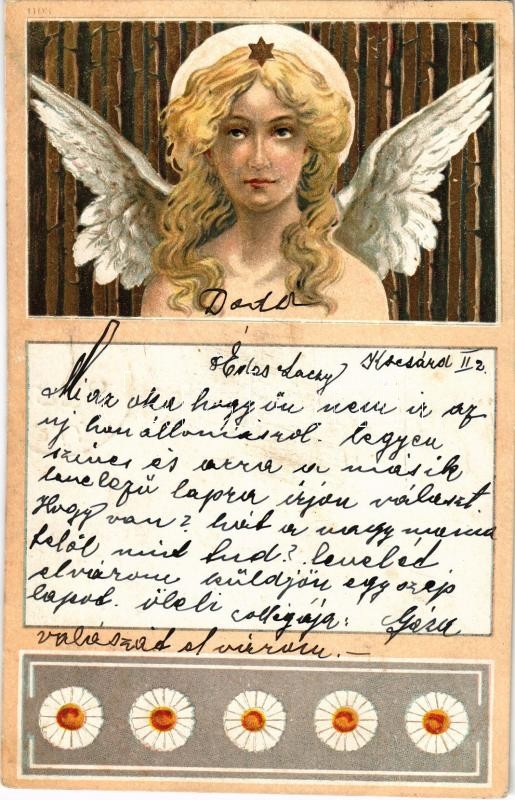 1105
Kocsárd II 2.
Édes Laczy
Mi az oka hogy ön nem ir az
új honállomásrol. Legyen
szives és arra a másik
levelező lapra irjon választ
Hogy van? hát a nagy mama
felől mit tud? leveled
elvárom küldjön egy szép
lapot. öleli collegája: Géza
válaszát elvárom. —